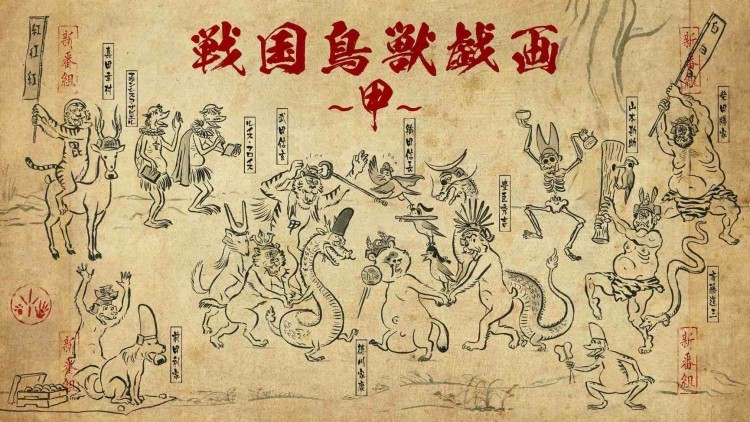 戦国鳥獣戯画
～甲～
新番組
新番組
新番組
新番組
真田幸村
フランシスコ・ザビエル
ルイス・フロイス
武田信玄
織田信長
豊臣秀吉
山本勘助
柴田勝家
斎藤道三
前田利家
徳川家康